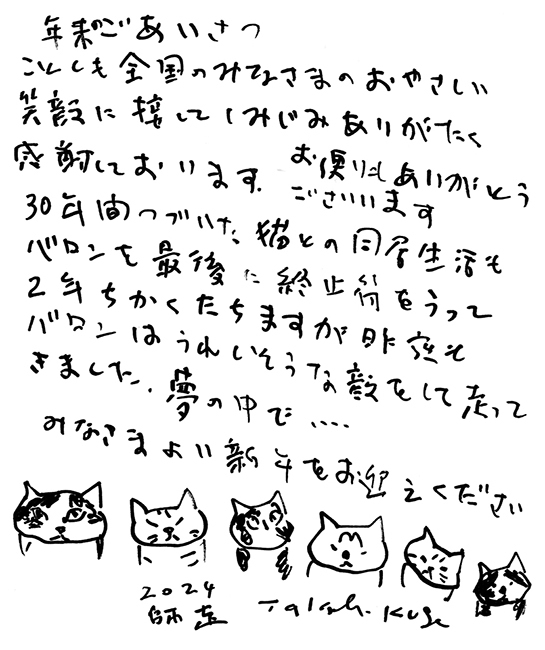 年末のごあいさつ
ことしも全国のみなさまのおやさしい
笑顔に接してしみじみありがたく
感謝しております。お便りもありがとう
ございます
30年間つづいた、猫との同居生活も
バロンを最後に終止符をうって
2年ちかくたちますが昨夜も
バロンはうれしそうな顔をして走って
きました、夢の中で....
みなさまよい新年をお迎えください
2024
師走 Takashi Kuge